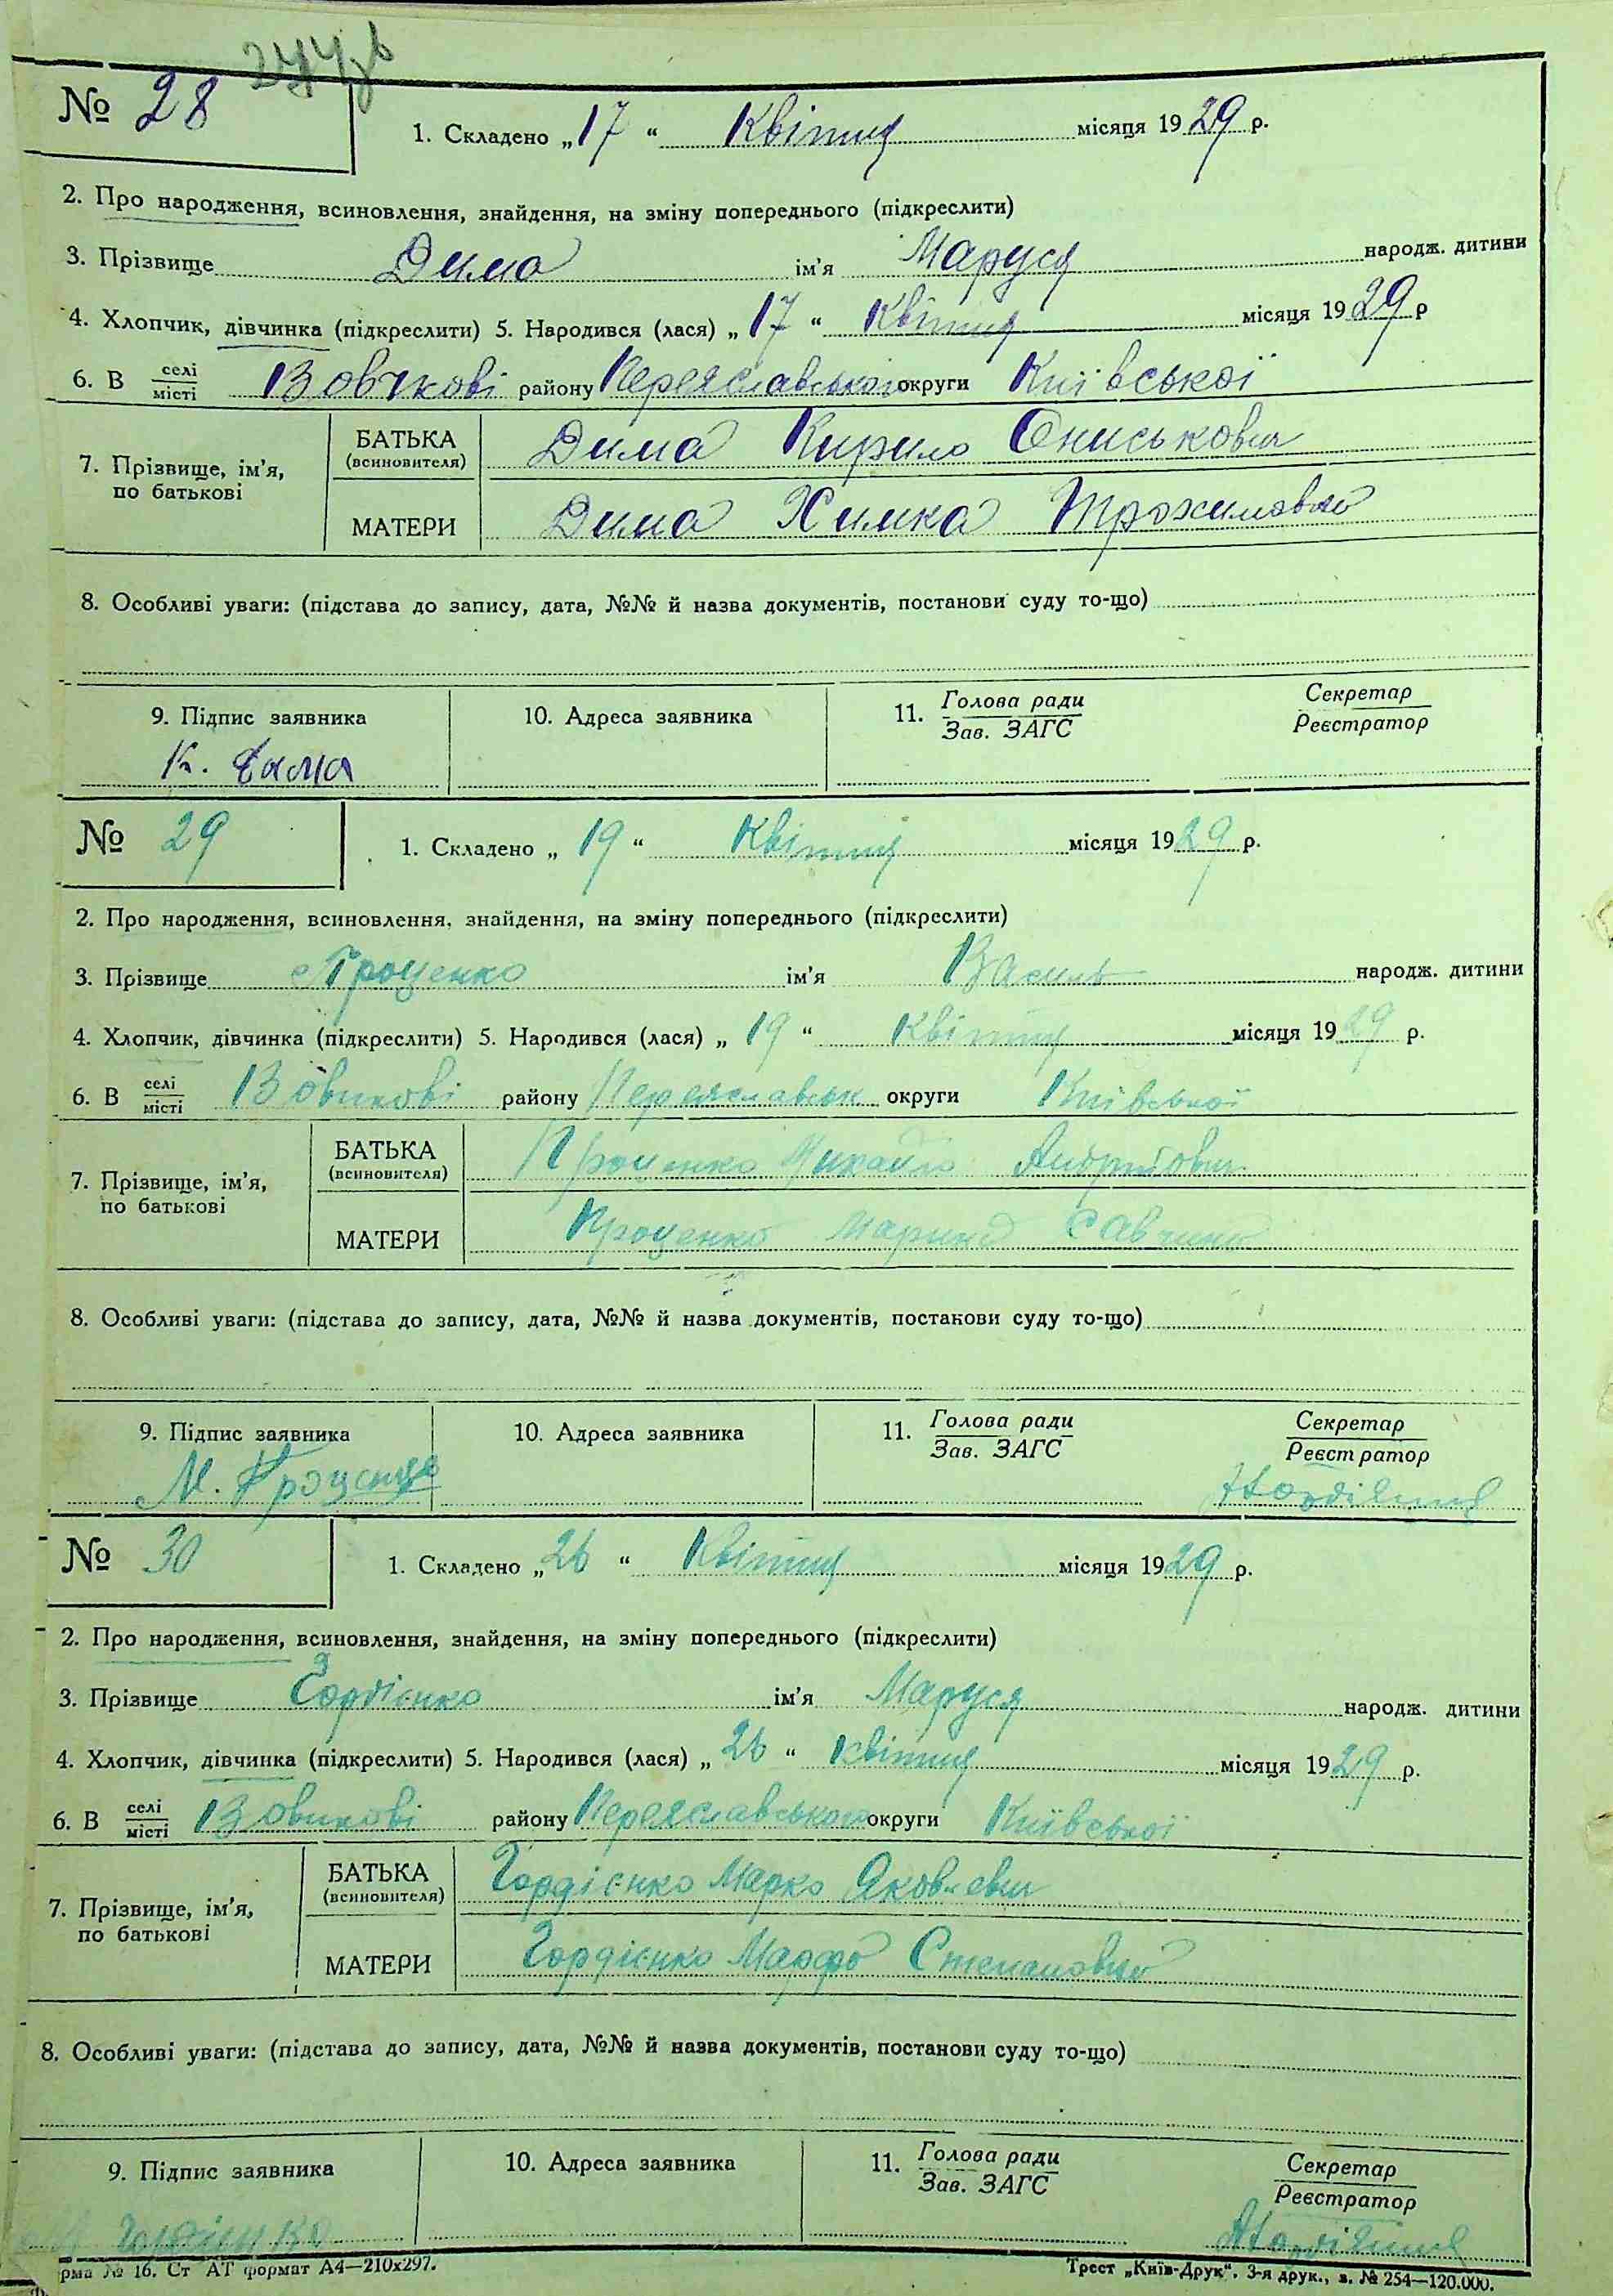 № 28
1. Складено „17“ Квітня місяця 1929 р.
2. Про народження, всиновлення, знайдення, на зміну попереднього (підкреслити)
3. Прізвище Дима ім'я Маруся народж. дитини
4. Хлопчик, дівчинка (підкреслити) 5. Народився (лася) „17“ Квітня місяця 1929 р
6. В селі/місті Вовчкові району Переяславського округи Київської
7. Прізвище, ім'я, по батькові
БАТЬКА (всиновителя) Дима Кирило Ониськович
МАТЕРИ Дима Химка Трохимовна
8. Особливі уваги: (підстава до запису, дата, №№ й назва документів, постанови суду то-що)
9. Підпис заявника 10. Адреса заявника 11. Голова ради/Зав. ЗАГС Секретар/Реєстратор
К. Дима
№ 29
1. Складено „19“ Квітня місяця 1929 р.
2. Про народження, всиновлення, знайдення, на зміну попереднього (підкреслити)
3. Прізвище Проценко ім'я Василь народж. дитини
4. Хлопчик, дівчинка (підкреслити) 5. Народився (лася) „19“ Квітня місяця 1929 р.
6. В селі/місті Вовчкові району Переяславськ округи Київської
7. Прізвище, ім'я, по батькові
БАТЬКА (всиновителя) Проценко Михайло Андрійович
МАТЕРИ Проценко Марина
8. Особливі уваги: (підстава до запису, дата, №№ й назва документів, постанови суду то-що)
9. Підпис заявника 10. Адреса заявника 11. Голова ради/Зав. ЗАГС Секретар/Реєстратор
М. Проценко
№ 30
1. Складено „26“ Квітня місяця 1929 р.
2. Про народження, всиновлення, знайдення, на зміну попереднього (підкреслити)
3. Прізвище Гордієнко ім'я Маруся народж. дитини
4. Хлопчик, дівчинка (підкреслити) 5. Народився (лася) „26“ Квітня місяця 1929 р.
6. В селі/місті Вовчкові району Переяславського округи Київської
7. Прізвище, ім'я, по батькові
БАТЬКА (всиновителя) Гордієнко Марко Яковлевич
МАТЕРИ Гордієнко Марфа Степановна
8. Особливі уваги: (підстава до запису, дата, №№ й назва документів, постанови суду то-що)
9. Підпис заявника 10. Адреса заявника 11. Голова ради/Зав. ЗАГС Секретар/Реєстратор
Гордіенко
рма № 16. Ст АТ формат А4—210х297. Трест „Київ-Друк“. 3-я друк., з. № 254—120.000.